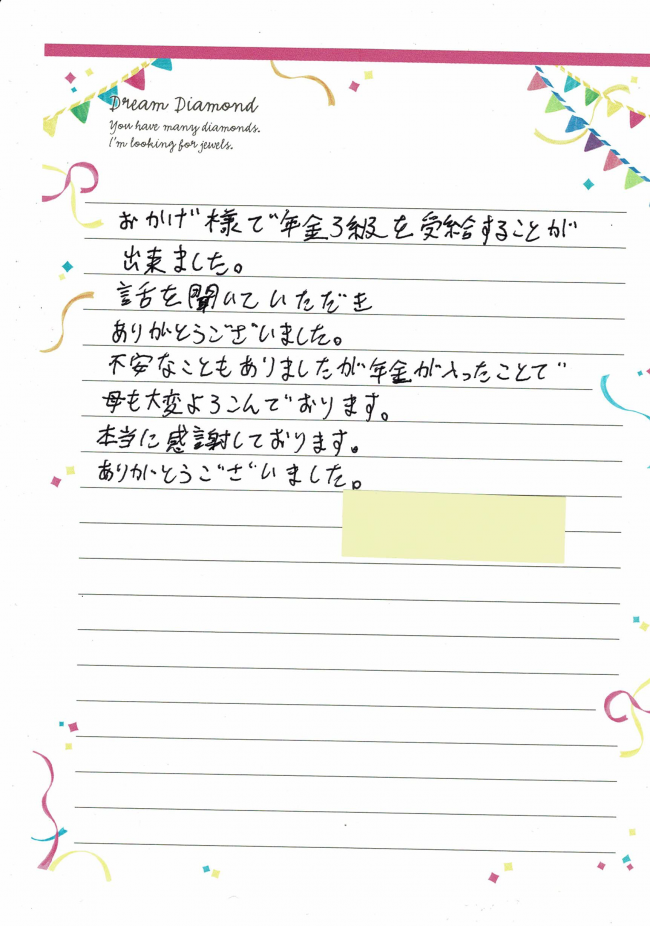 Dream Diamond
You have many diamonds.
I'm looking for jewels.
おかげ様で年金3級を受給することが
出来ました。
話を聞いていただき
ありがとうございました。
不安なこともありましたが年金が入ったことで
母も大変よろこんでおります。
本当に感謝しております。
ありがとうございました。